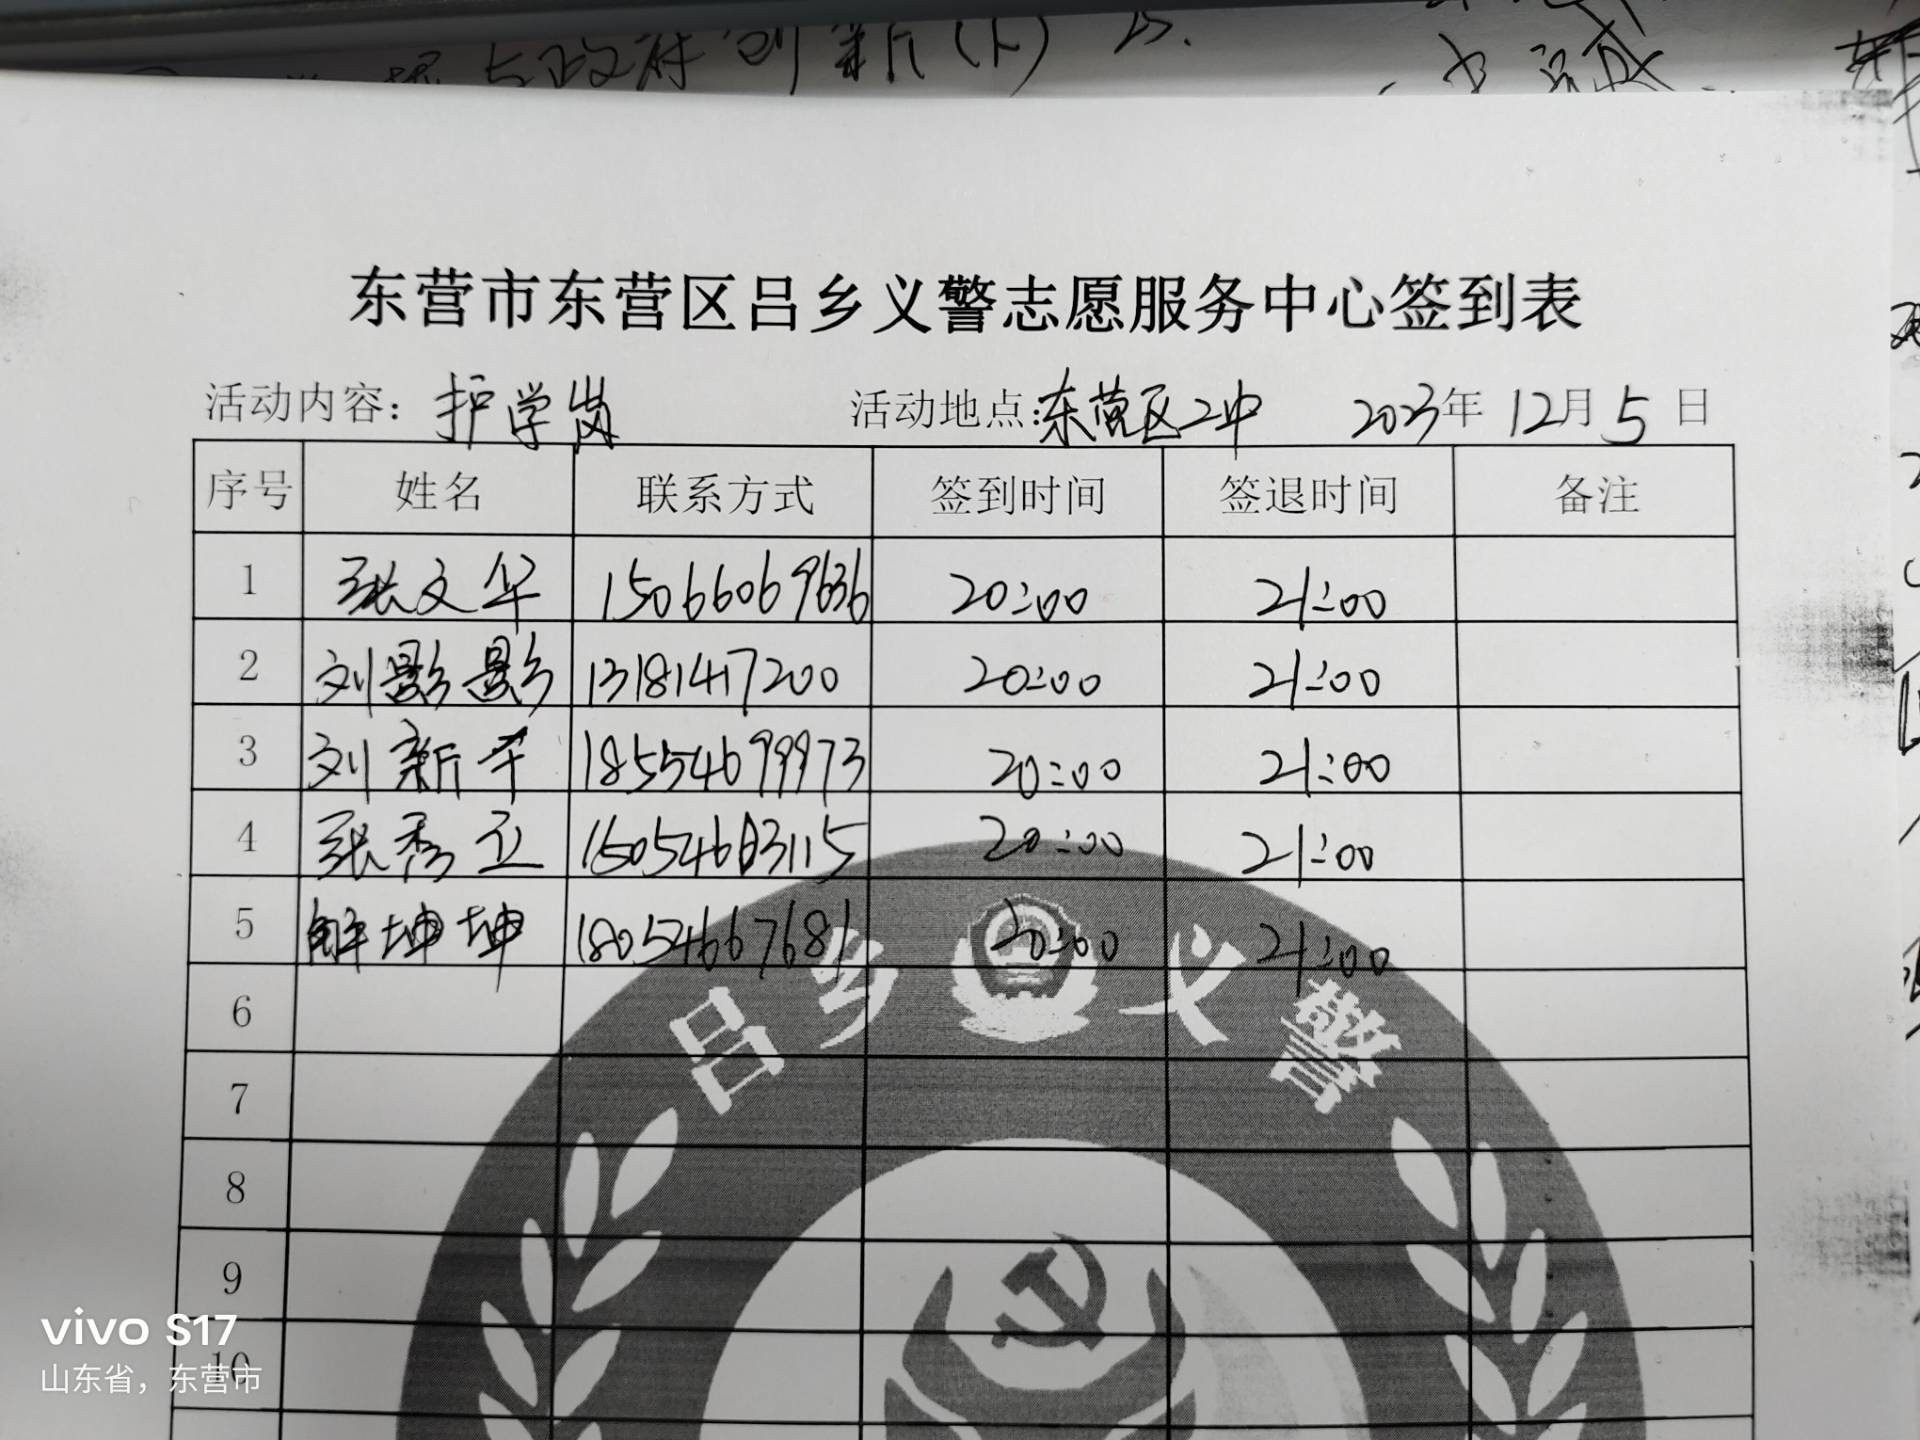 与政府创新(下)
东营市东营区吕乡义警志愿服务中心签到表
活动内容：护学岗 活动地点：东营区2中 2023年12月5日
序号 姓名 联系方式 签到时间 签退时间 备注
1 张文华 15066069636 20:00 21:00
2 刘影影 13181417200 20:00 21:00
3 刘新华 18554699973 20:00 21:00
4 张秀卫 15054683115 20:00 21:00
5 解坤坤 18054667681 20:00 21:00
6
7
8
9
10
吕乡义警
vivo S17
山东省，东营市